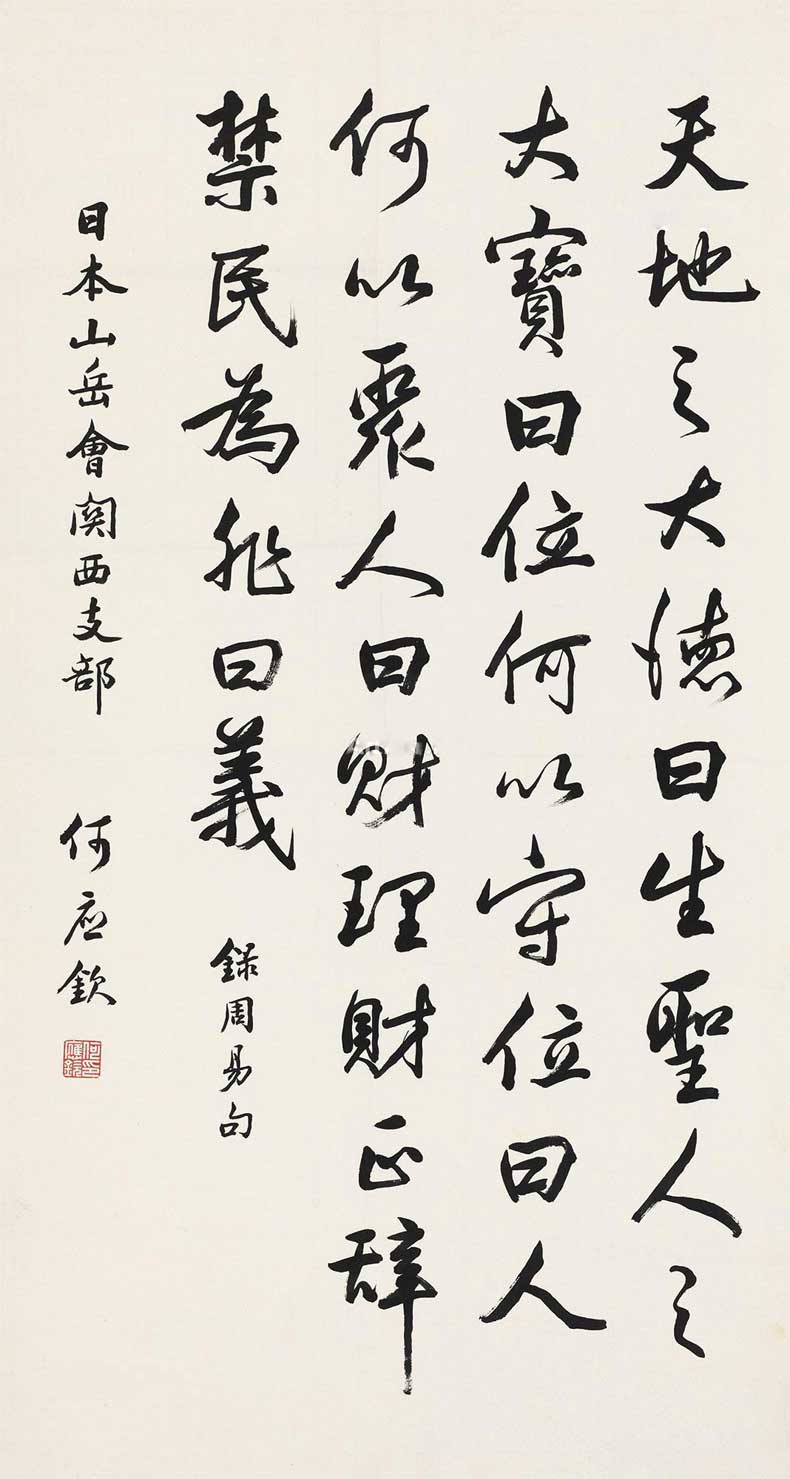 天地之大德曰生聖人之
大寶曰位何以守位曰人
何以聚人曰財理財正辭
禁民為非曰義
錄周易句
日本山岳會関西支部
何应欽
何應欽印